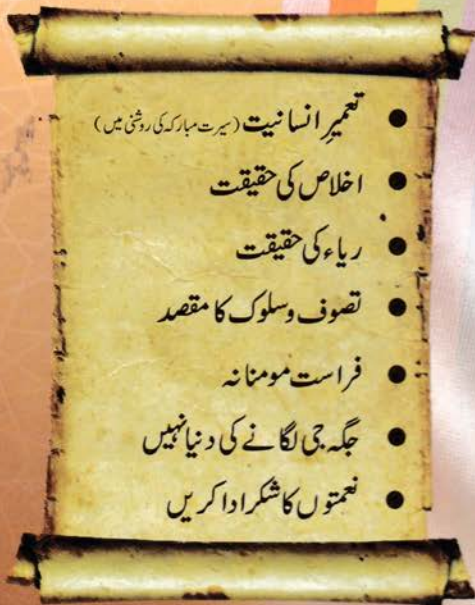 • تعمیرِ انسانیت (سیرت مبارکہ کی روشنی میں)
• اخلاص کی حقیقت
• ریاء کی حقیقت
• تصوف وسلوک کا مقصد
• فراست مومنانہ
• جگہ جی لگانے کی دنیا نہیں
• نعمتوں کا شکر ادا کریں